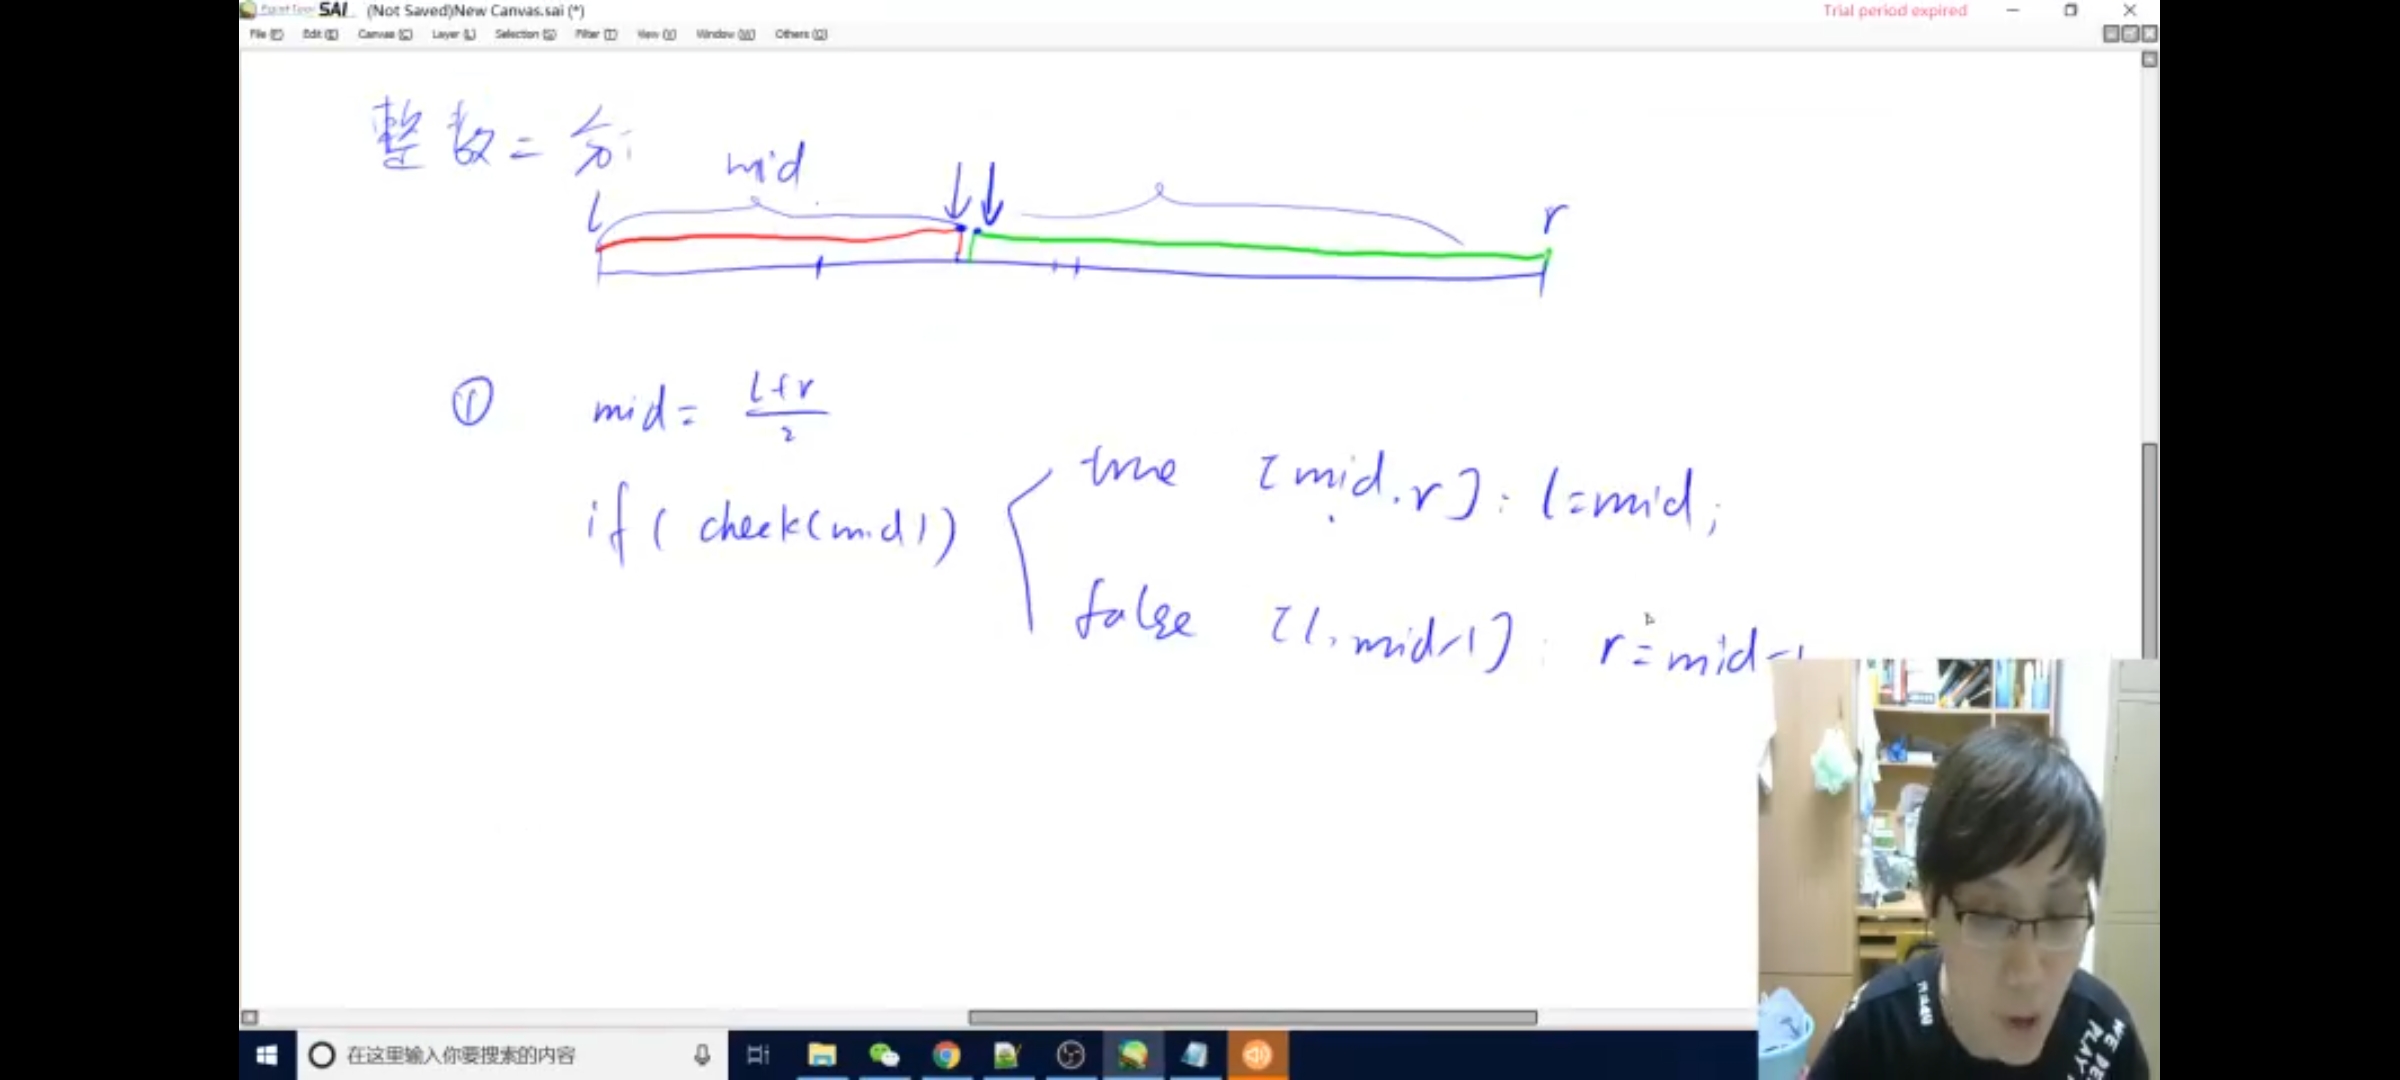 SAI (Not Saved)New Canvas.sai (*)
Trial period expired
File (F) Edit (E) Canvas (C) Layer (L) Selection (S) Filter (T) View (V) Window (W) Others (O)
整数二分
mid
l
r
① mid = l+r
2
true [mid, r] : l=mid;
if ( check(mid))
false [l, mid-1] : r=mid-1
在这里输入你要搜索的内容
WE
PLAY